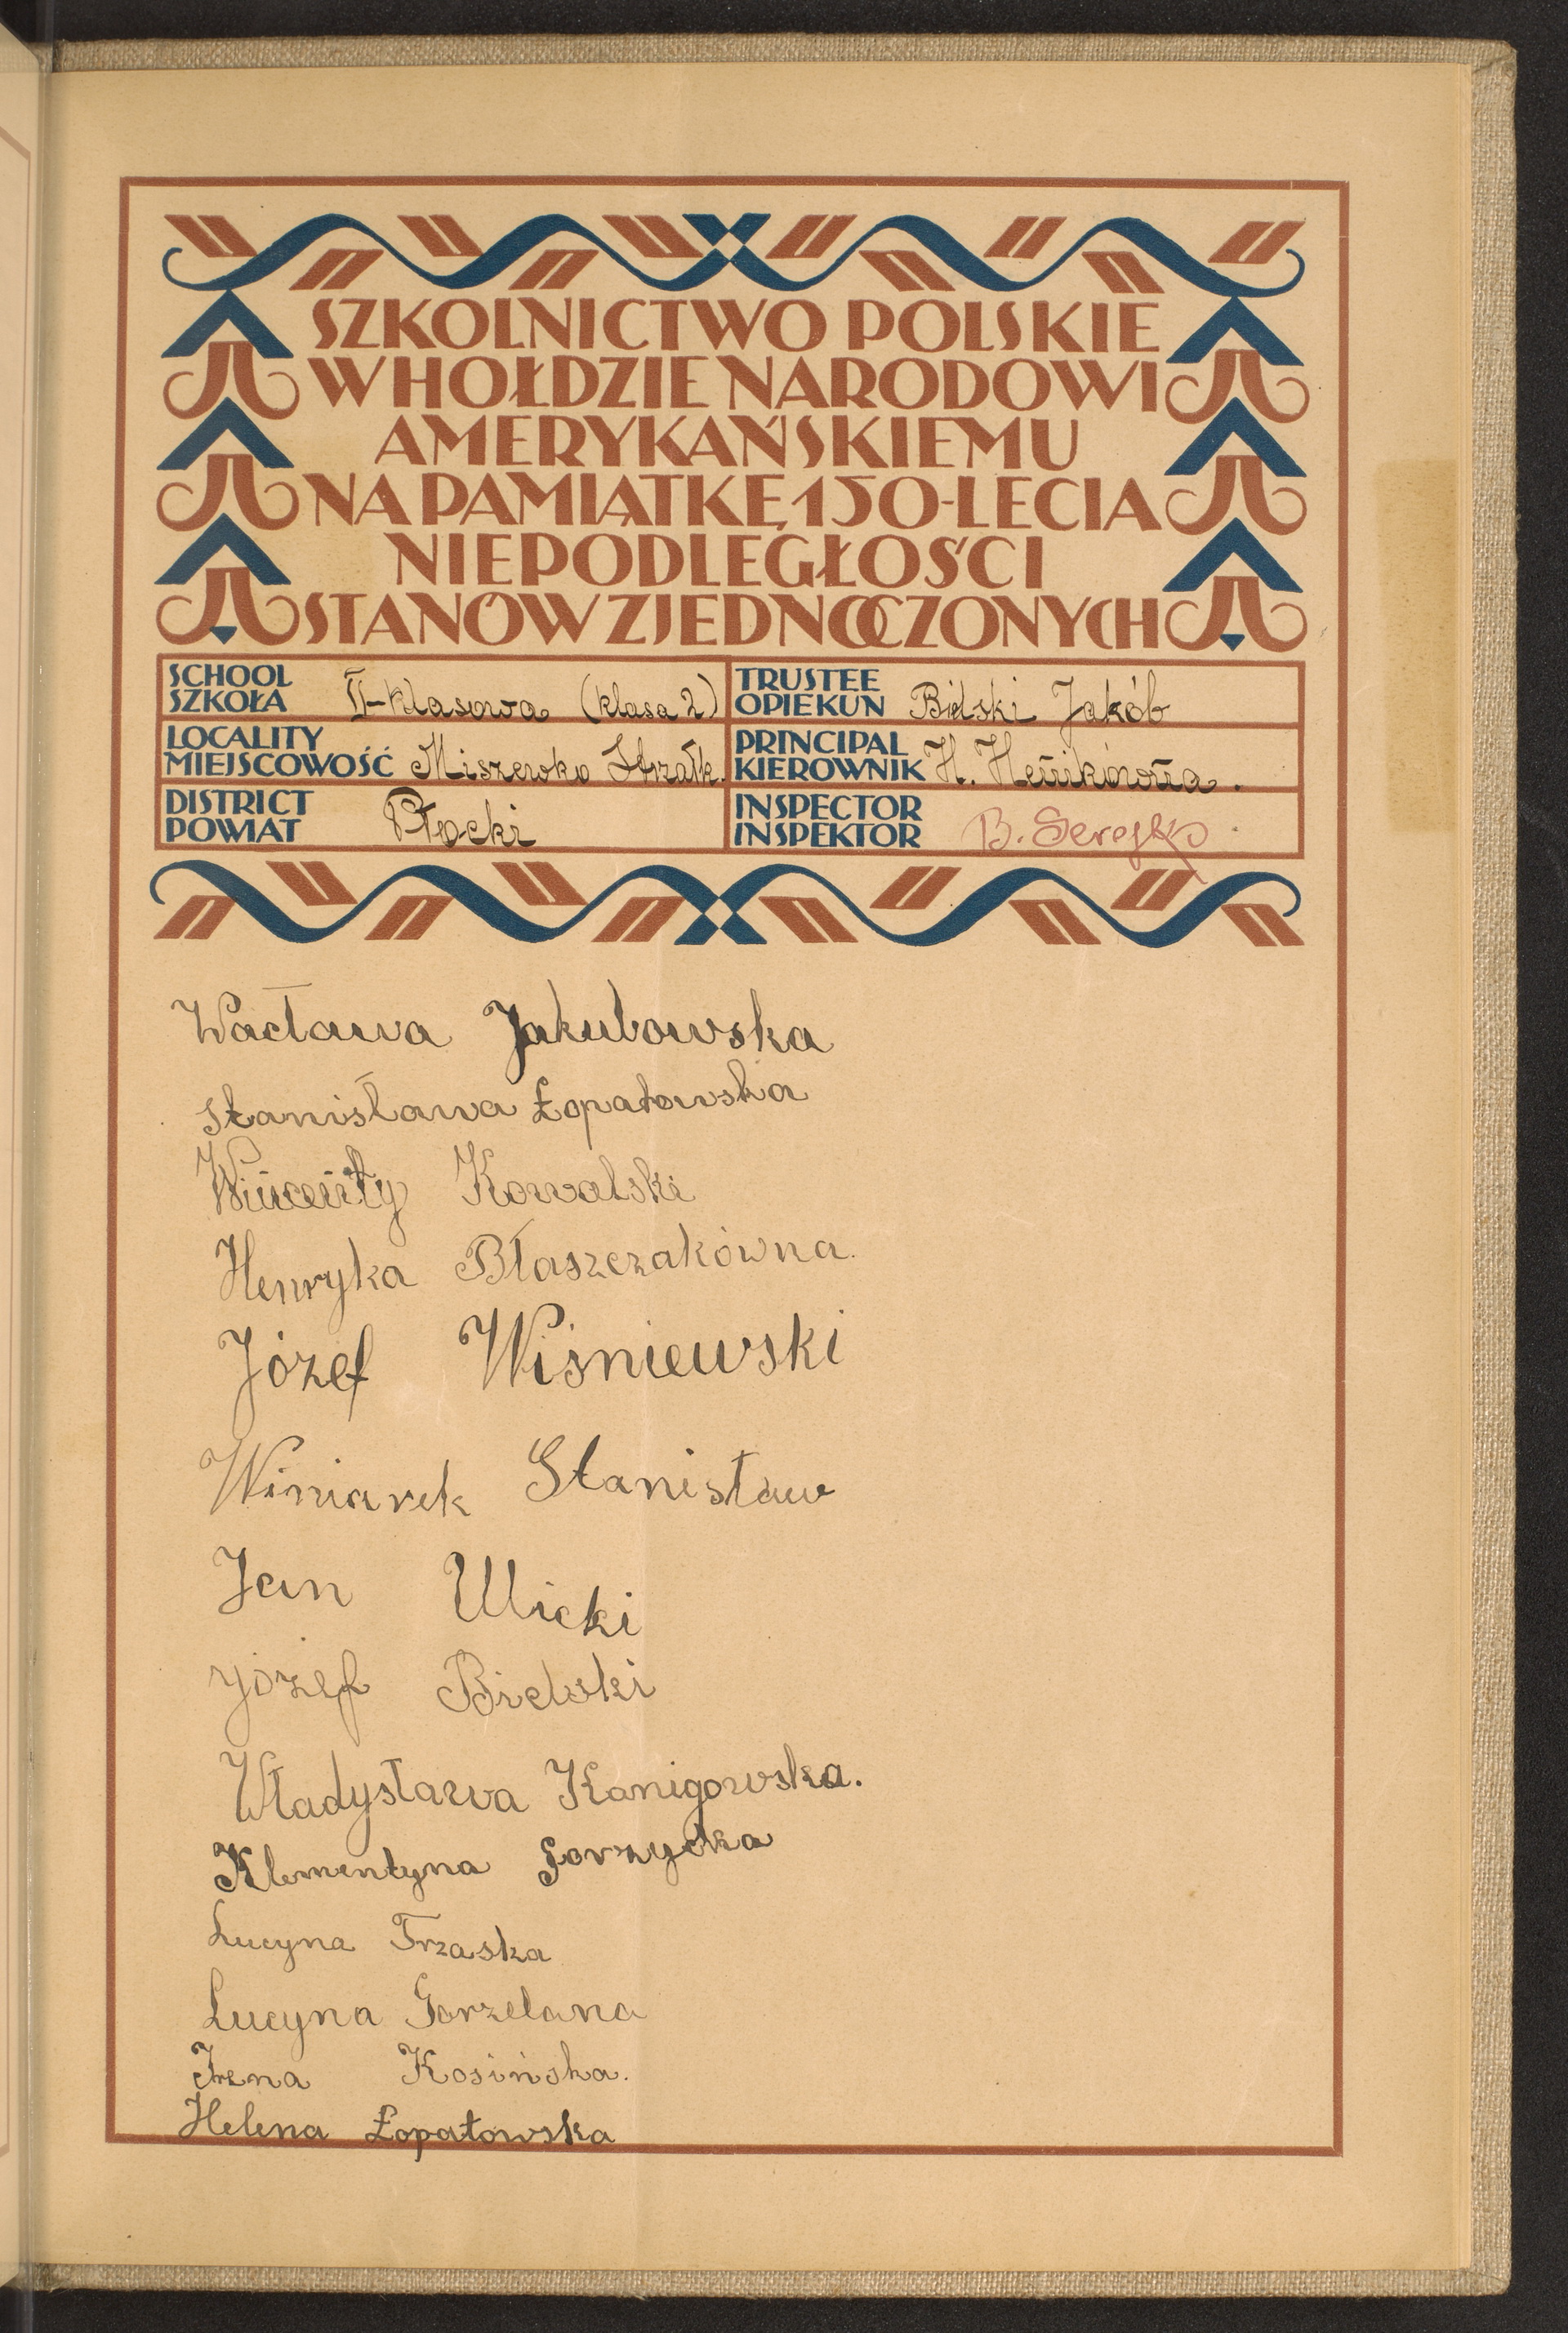 SZKOLNICTWO POLSKIE
W HOŁDZIE NARODOWI
AMERYKAŃSKIEMU
NA PAMIĄTKĘ 150-LECIA
NIEPODLEGŁOŚCI
STANÓW ZJEDNOCZONYCH
SCHOOL
SZKOŁA II-klasowa (klasa 2)
TRUSTEE
OPIEKUN Bielski Jakób
LOCALITY
MIEJSCOWOŚĆ Miszewko Strzałk.
PRINCIPAL
KIEROWNIK H. Heńikówna.
DISTRICT
POWIAT Płocki
INSPECTOR
INSPEKTOR B. Serejko
Wacława Jakubowska
Stanisława Łopatowska
Wincenty Kowalski
Henryka Błaszczakówna.
Józef Wiśniewski
Winiarek Stanisław
Jan Ulicki
Józef Bielski
Władysława Kanigowska.
Klementyna Gorzycka
Lucyna Trzaska
Lucyna Gorzelana
Irena Kosińska.
Helena Łopatowska